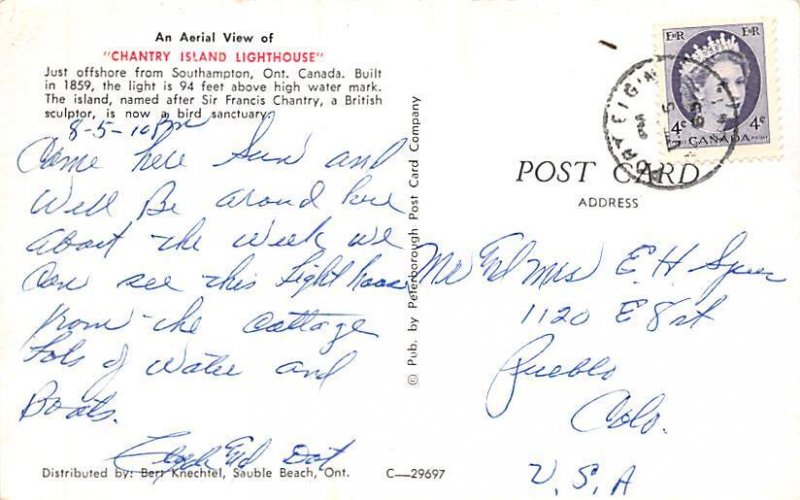 An Aerial View of
"CHANTRY ISLAND LIGHTHOUSE"
Just offshore from Southampton, Ont. Canada. Built
in 1859, the light is 94 feet above high water mark.
The island, named after Sir Francis Chantry, a British
sculptor, is now a bird sanctuary.
8-5-10 PM
Came here Sun and
Will Be around here
About the Week we
Can see this Light house
From the Cottage
Lots of Water and
Boats.
And Dot
Distributed by: Bert Knechtel, Sauble Beach, Ont.
C—29697
© Pub. by Peterborough Post Card Company
E II R E II R
4c 4c
CANADA
POST CARD
ADDRESS
Mr And Mrs E. H.
1120 E 8 st
Pueblo
Colo.
U. S. A